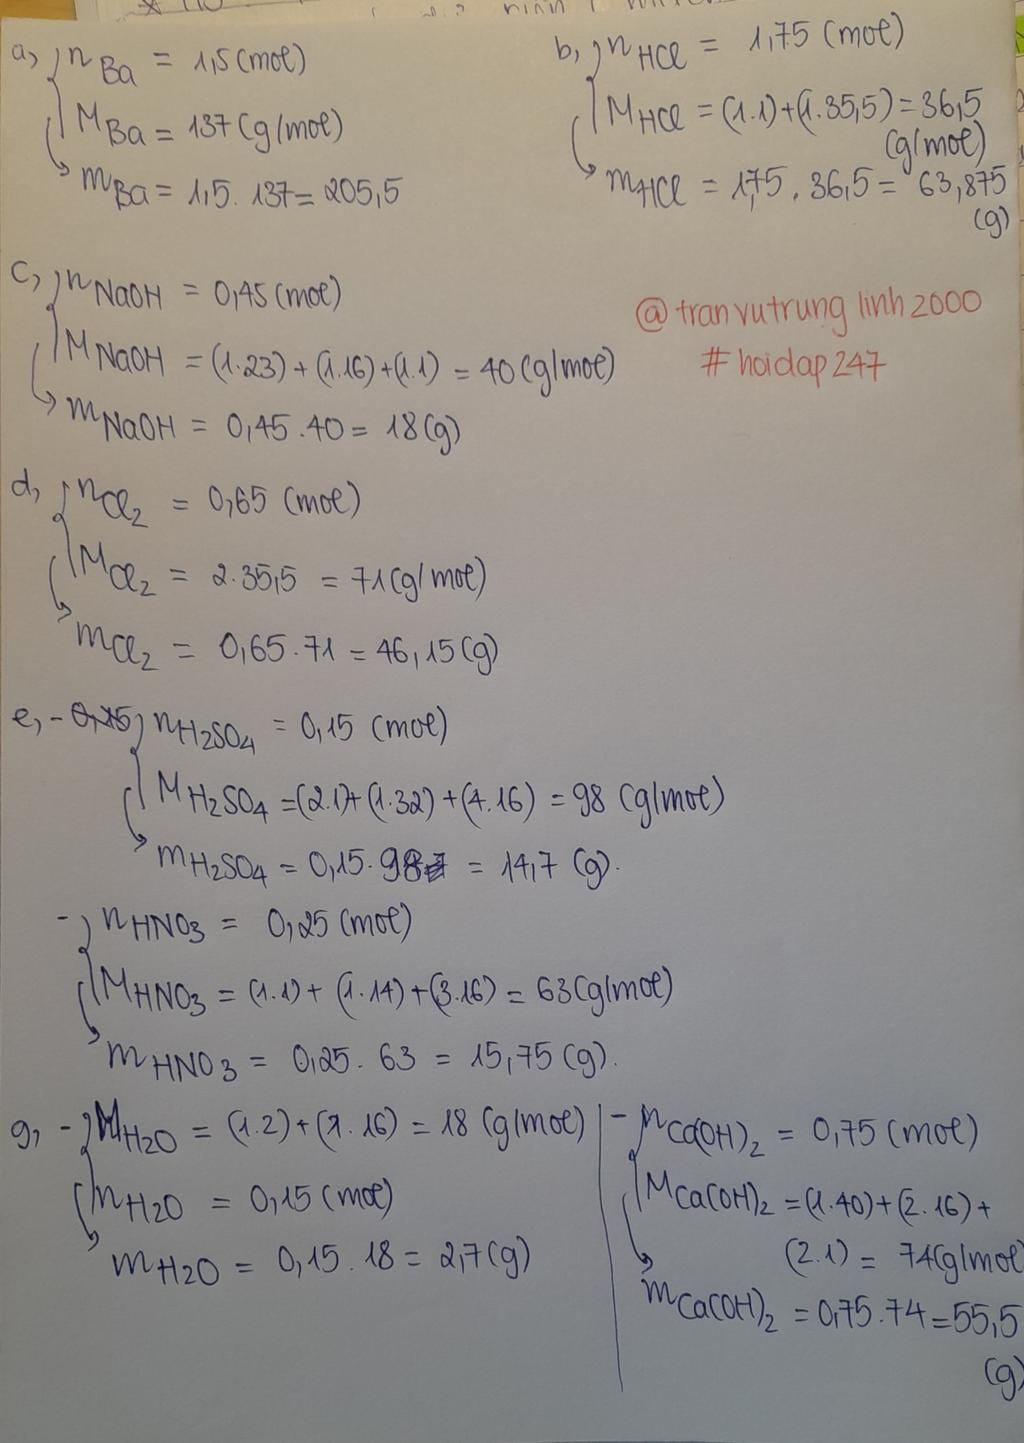 a, n Ba = 1,5 (mol)
M Ba = 137 (g/mol)
m Ba = 1,5 . 137 = 205,5
b, n HCl = 1,75 (mol)
M HCl = (1.1)+(1.35,5) = 36,5
(g/mol)
m HCl = 1,75 . 36,5 = 63,875
(g)
c, n NaOH = 0,45 (mol)
M NaOH = (1.23) + (1.16) + (1.1) = 40 (g/mol)
m NaOH = 0,45 . 40 = 18 (g)
@tranvutrunglinh2000
#hoidap247
d, n Cl2 = 0,65 (mol)
M Cl2 = 2.35,5 = 71 (g/mol)
m Cl2 = 0,65 . 71 = 46,15 (g)
e, - n H2SO4 = 0,15 (mol)
M H2SO4 = (2.1)+(1.32)+(4.16) = 98 (g/mol)
m H2SO4 = 0,15 . 98 = 14,7 (g).
- n HNO3 = 0,25 (mol)
M HNO3 = (1.1) + (1.14) + (3.16) = 63 (g/mol)
m HNO3 = 0,25 . 63 = 15,75 (g).
g, - M H2O = (1.2)+(1.16) = 18 (g/mol)
n H2O = 0,15 (mol)
m H2O = 0,15 . 18 = 2,7 (g)
- n Ca(OH)2 = 0,75 (mol)
M Ca(OH)2 = (1.40)+(2.16)+
(2.1) = 74 (g/mol
m Ca(OH)2 = 0,75.74 = 55,5
(g)